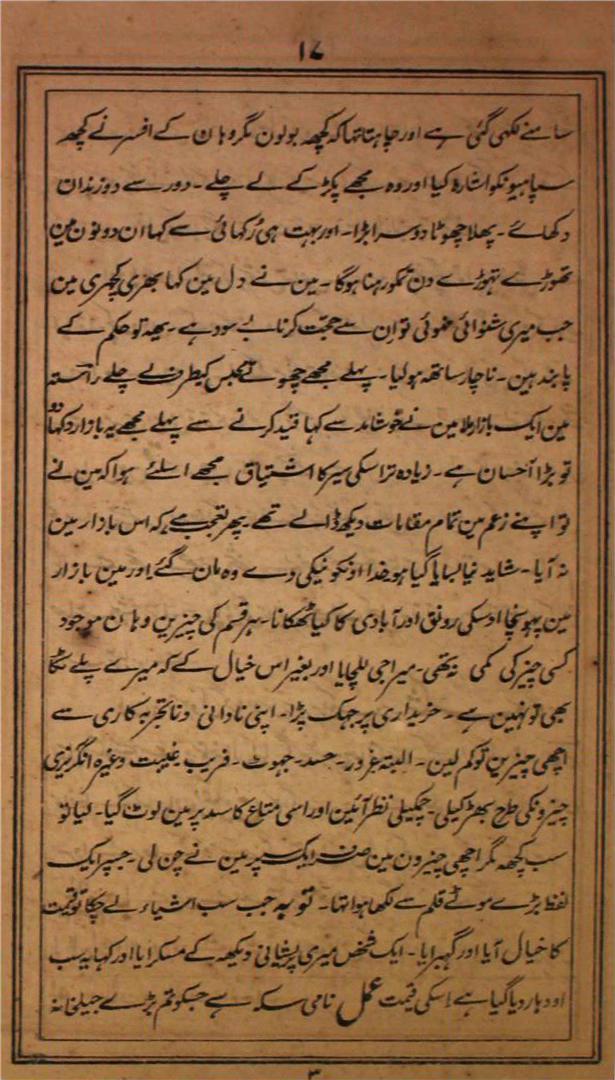 ۱۷
سامنے لکھی گئی ہے اور چاہتا تہا کہ کچھہ بولون مگر وہان کے افسر نے کچھہ
سپاہیونکو اشارہ کیا اور وہ مجھے پکڑ کے لے چلے۔ دور سے دو زندان
دکھائے۔ پھلا چھوٹا دوسرا بڑا۔ اور بہت ہی رُکھائی سے کہا ان دونون مین
تھوڑے تہوڑے دن تمکو رہنا ہوگا۔ مین نے دل مین کہا بھری کچہری مین
جب میری شنوائی نھوئی تو ان سے حجت کرنا بے سود ہے۔ یہہ تو حکم کے
پابند ہین۔ ناچار ساتھہ ہولیا۔ پہلے مجھے چھوٹے محبس کیطرف لے چلے راستہ
مین ایک بازار ملا مین نے خوشامد سے کہا قید کرنے سے پہلے مجھے یہ بازار دکہادو
تو بڑا احسان ہے۔ زیادہ تر اسکی سیر کا اشتیاق مجھے اسلئے ہوا کہ مین نے
تو اپنے زعم مین تمام مقامات دیکھہ ڈالے تھے پھر تعجب ہے کہ اس بازار مین
نہ آیا۔ شاید نیا بسایا گیا ہو خدا اونکو نیکی دے وہ مان گئے اور مین بازار
مین پہونچا اوسکی رونق اور آبادی کا کیا ٹھکانا۔ ہر قسم کی چیزین وہان موجود
کسی چیز کی کمی نہ تھی۔ میرا جی للچایا اور بغیر اس خیال کے کہ میرے پلے ٹکا
بھی تو نہین ہے۔ خریداری پر جہک پڑا۔ اپنی نادانی و ناتجربہ کاری سے
اچھی چیزین تو کم لین۔ البتہ غرور۔ حسد۔ جہوٹ۔ فریب غیبت وغیرہ انگریزی
چیزونکی طرح بھڑکیلی۔ چمکیلی نظر آئین اور اسی متاع کاسد پر مین لوٹ گیا۔ لیا تو
سب کچھہ مگر اچھی چیزون مین صرف ایک سپر مین نے چن لی۔ جسپر ایک
لفظ بڑے موٹے قلم سے لکھا ہوا تہا۔ توبہ جب سب اشیاء لے چکا تو قیمت
کا خیال آیا اور گہبرایا۔ ایک شخص میری پریشانی دیکھہ کے مسکرایا اور کہا یہ سب
اودہار دیا گیا ہے اسکی قیمت عمل نامی سکہ ہے جسکو تم بڑے جیلخانہ
۳